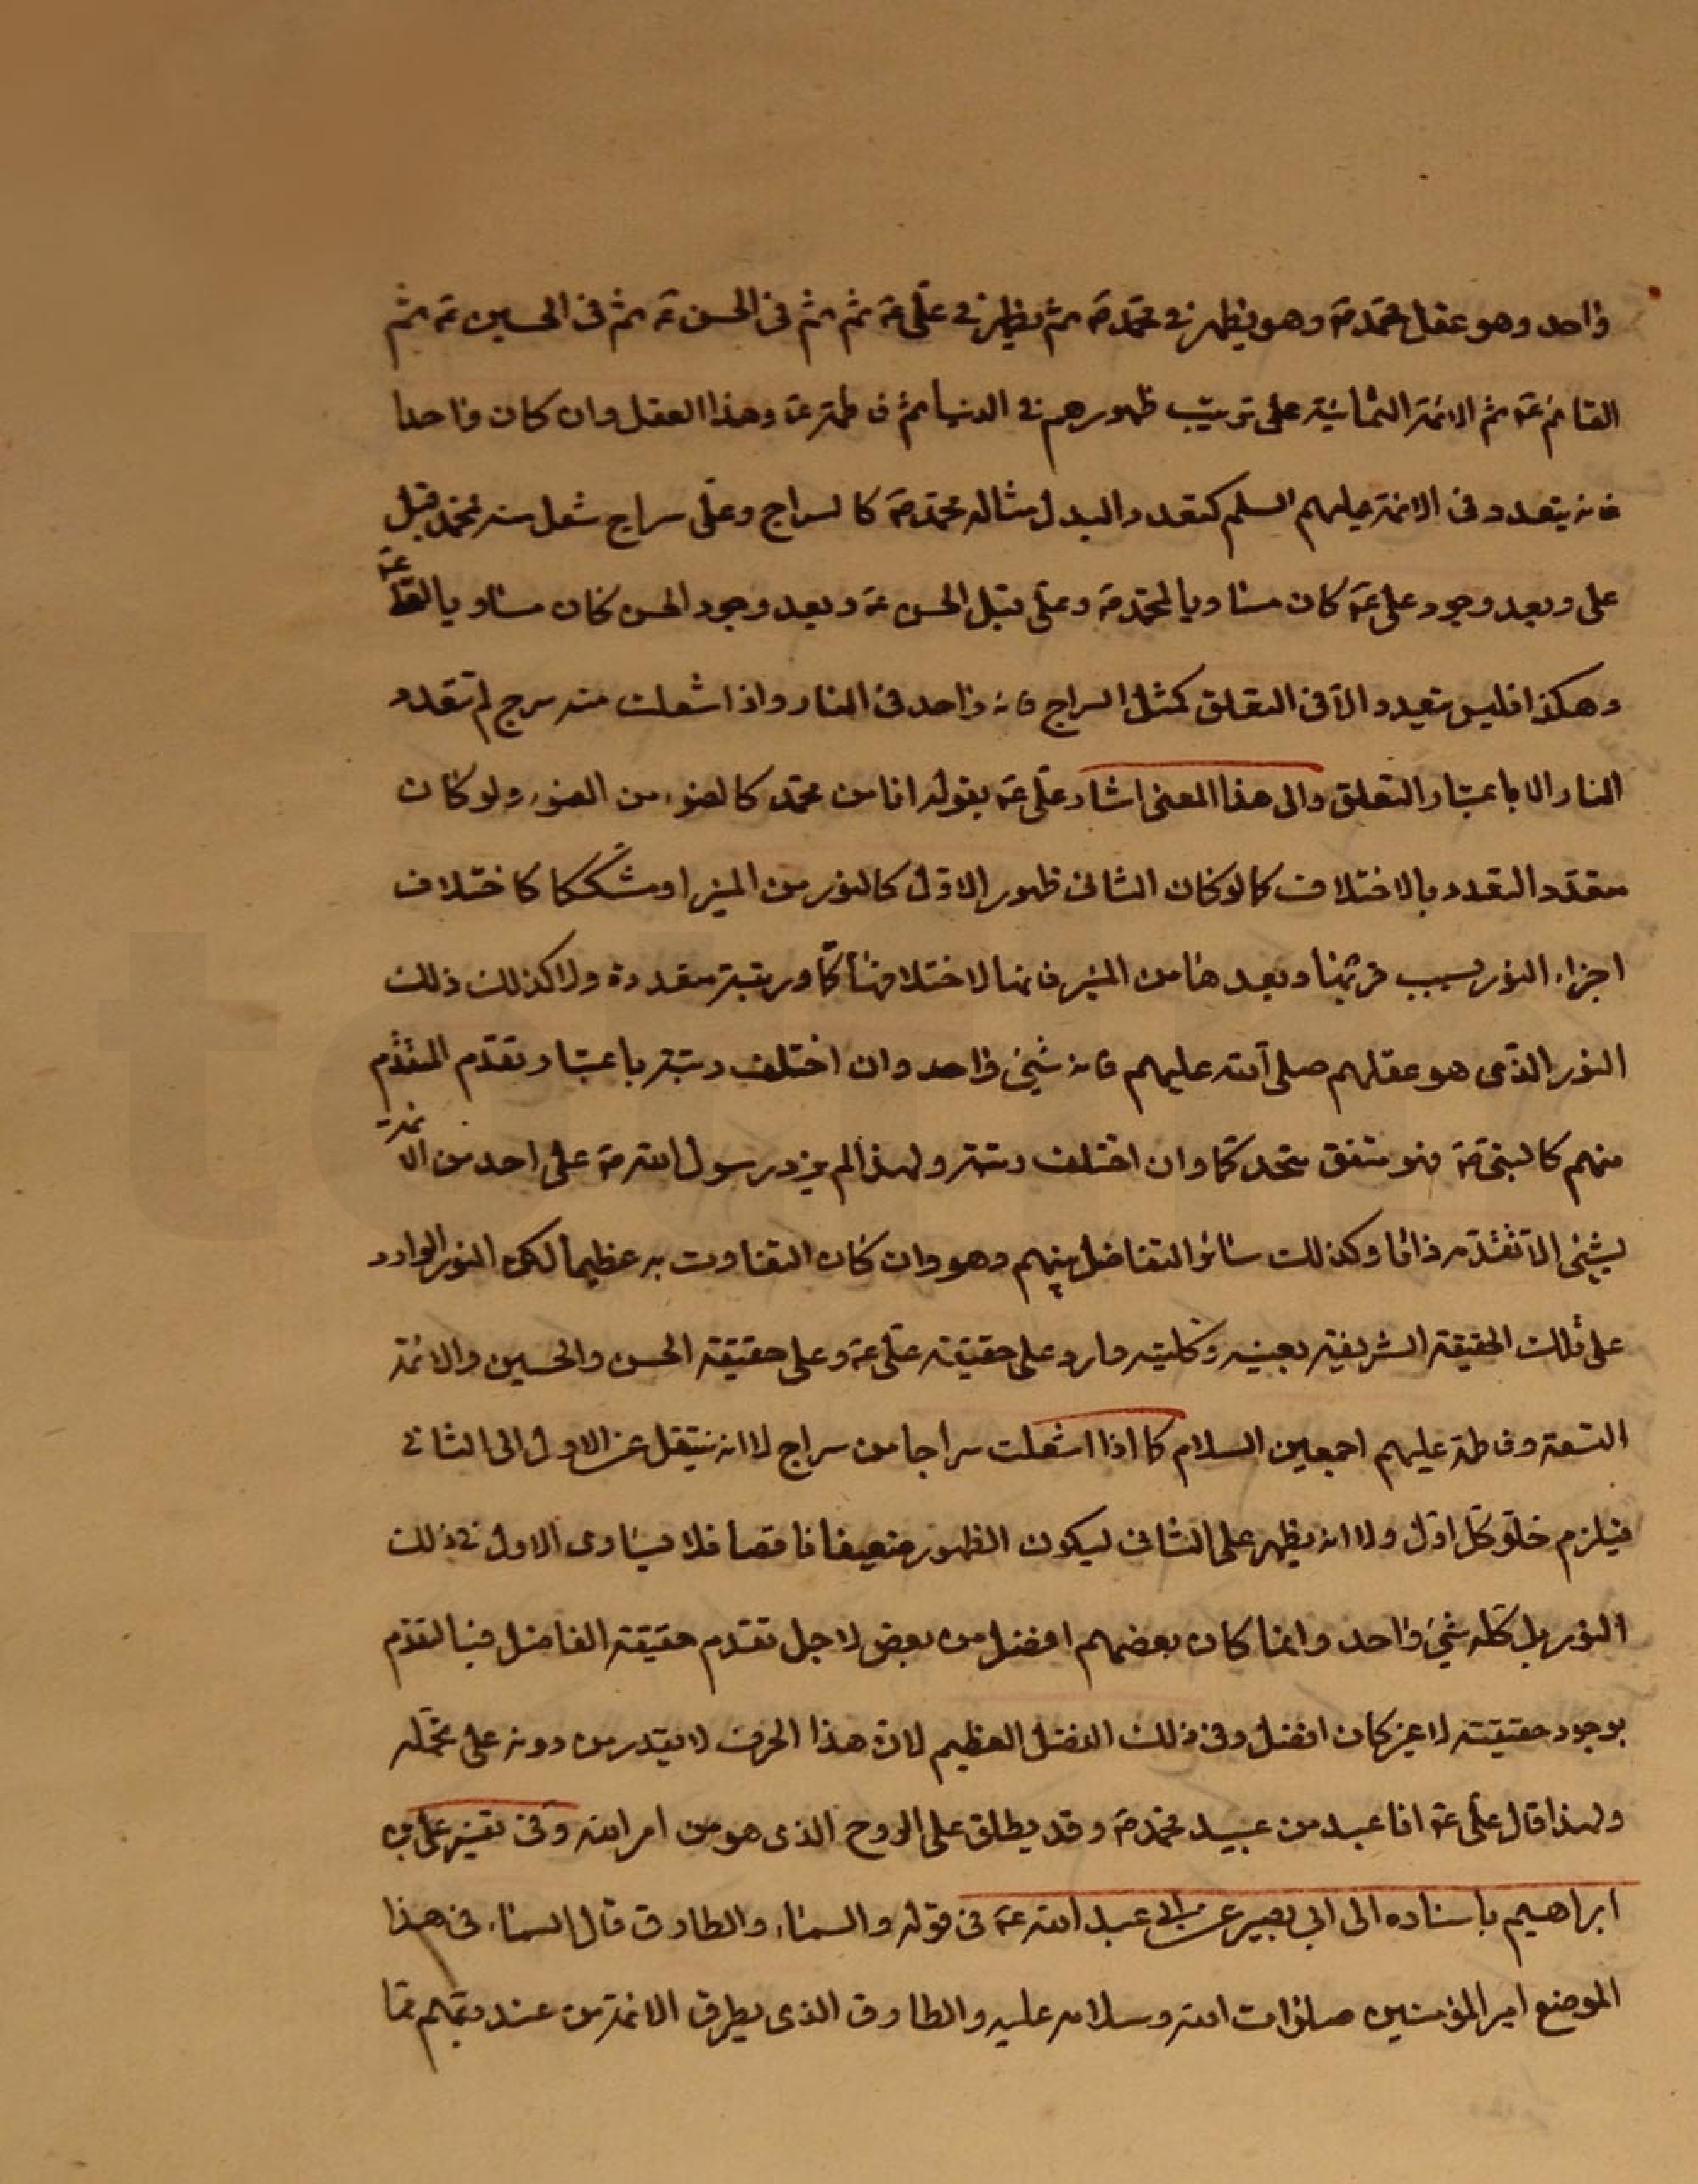 واحد وهو عقل محمّد صَ وهو يظهر في محمّد صَ ثم يظهر في علّى عَ ثم ثم في الحسن عَ ثم في الحسين عَ ثم
القائم عَ ثم الائمة الثمانية على ترتيب ظهورهم في الدنيا ثم فاطمة عَ وهذا العقل وان كان واحدا
فانه يتعدد في الائمة عليهم السلم كتعدد البدل مثاله محمّد صَ كالسراج وعلّى سراج شعل منه فمحمد قبل
على وبعد وجود على عَ كان مساويا لمحمّد صَ وعلّى قبل الحسن عَ وبعد وجود الحسن كان مساويا لعلى عَ
وهكذا فليس بتعدد الّا في التعلق كمثل السراج فانه واحد في النار واذا اشعلت منه سرج لم تتعدد
النار الا باعتبار التعلق والى هذا المعنى اشار علّى عَ بقوله انا من محمّد كالضوء من الضوء ولو كان
متعدّد التعدد بالاختلاف كما لو كان الثانى ظهور الاوّل كالنور من المنير او مشككا كاختلاف
اجزاء النور بسبب قربها وبعدها من المنير فانها لاختلافها كمّا ورتبة متعددة ولا كذلك ذلك
النور الذّى هو عقلهم صلى اللّه عليهم فانه شىء واحد وان اختلف رتبة باعتبار تقدّم المتقدّم
منهم كالنبىّ صَ فهو متفق متحد كمّا وان اختلف رتبته ولهذا لم يزد رسول اللّه صَ على احد من الائمة
بشىء الّا تقدّمه ذاتا وكذلك سائر التفاضل بينهم وهو وان كان التفاوت به عظيما لكن النور الوارد
على تلك الحقيقة الشريفة بعينه وكليته وارد على حقيقة علّى عَ وعلى حقيقة الحسن والحسين والائمة
التسعة وفاطمة عليهم اجمعين السلام كما اذا اشعلت سراجا من سراج لا انه ينتقل عن الاول الى الثانى
فيلزم خلّو كل اوّل ولا انه يظهر على الثانى ليكون الظهور ضعيفا ناقصا فلا يساوى الاول فى ذلك
النور بل كلّه شىء واحد وانما كان بعضهم افضل من بعض لاجل تقدم حقيقة الفاضل فبالتقدّم
بوجود حقيقته لا غير كان افضل وفى ذلك الفضل العظيم لان هذا الحرف لا يقدر من دونه على تحمّله
ولهذا قال علّى عَ انا عبد من عبيد محمّد صَ وقد يطلق على الروح الذى هو من امر اللّه وفى تفسير على بن
ابراهيم باسناده الى ابى بصير عن ابى عبد اللّه عَ فى قوله والسماء والطارق قال السماء فى هذا
الموضع امير المؤمنين صلوات اللّه وسلامه عليه والطارق الذى يطرق الائمة من عند ربّهم مما